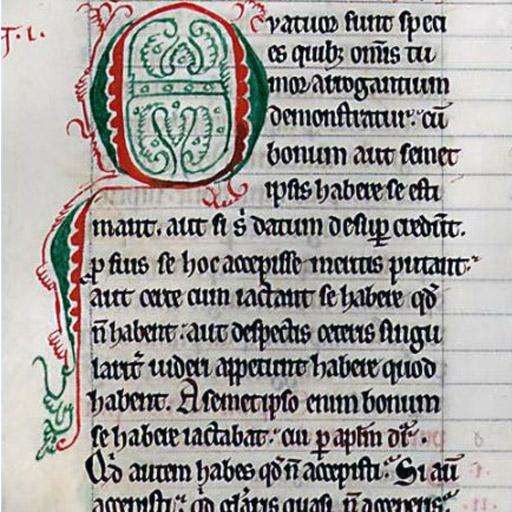 Quatuor sunt speci
es quibꝫ omīs tu
mor arrogantium
demonstratur. cū
bonum aut semet
ipsis habere se esti
mant. aut si ś datum desuꝑ credūt.
ꝓ suis se hoc accepisse meritis putant.
aut certe cum iactant se habere qđ
n̄ habent. aut despectis ceteris singu
larit᷑ uideri appetunt habere quod
habent. A semetipso enim bonum
se habere iactabat. cui ꝑ aplm̄ dr̄.
Qđ autem habes qđ n̄ accepisti. Si aū
accepisti. qđ gl̄aris quasi n̄ acceperis.